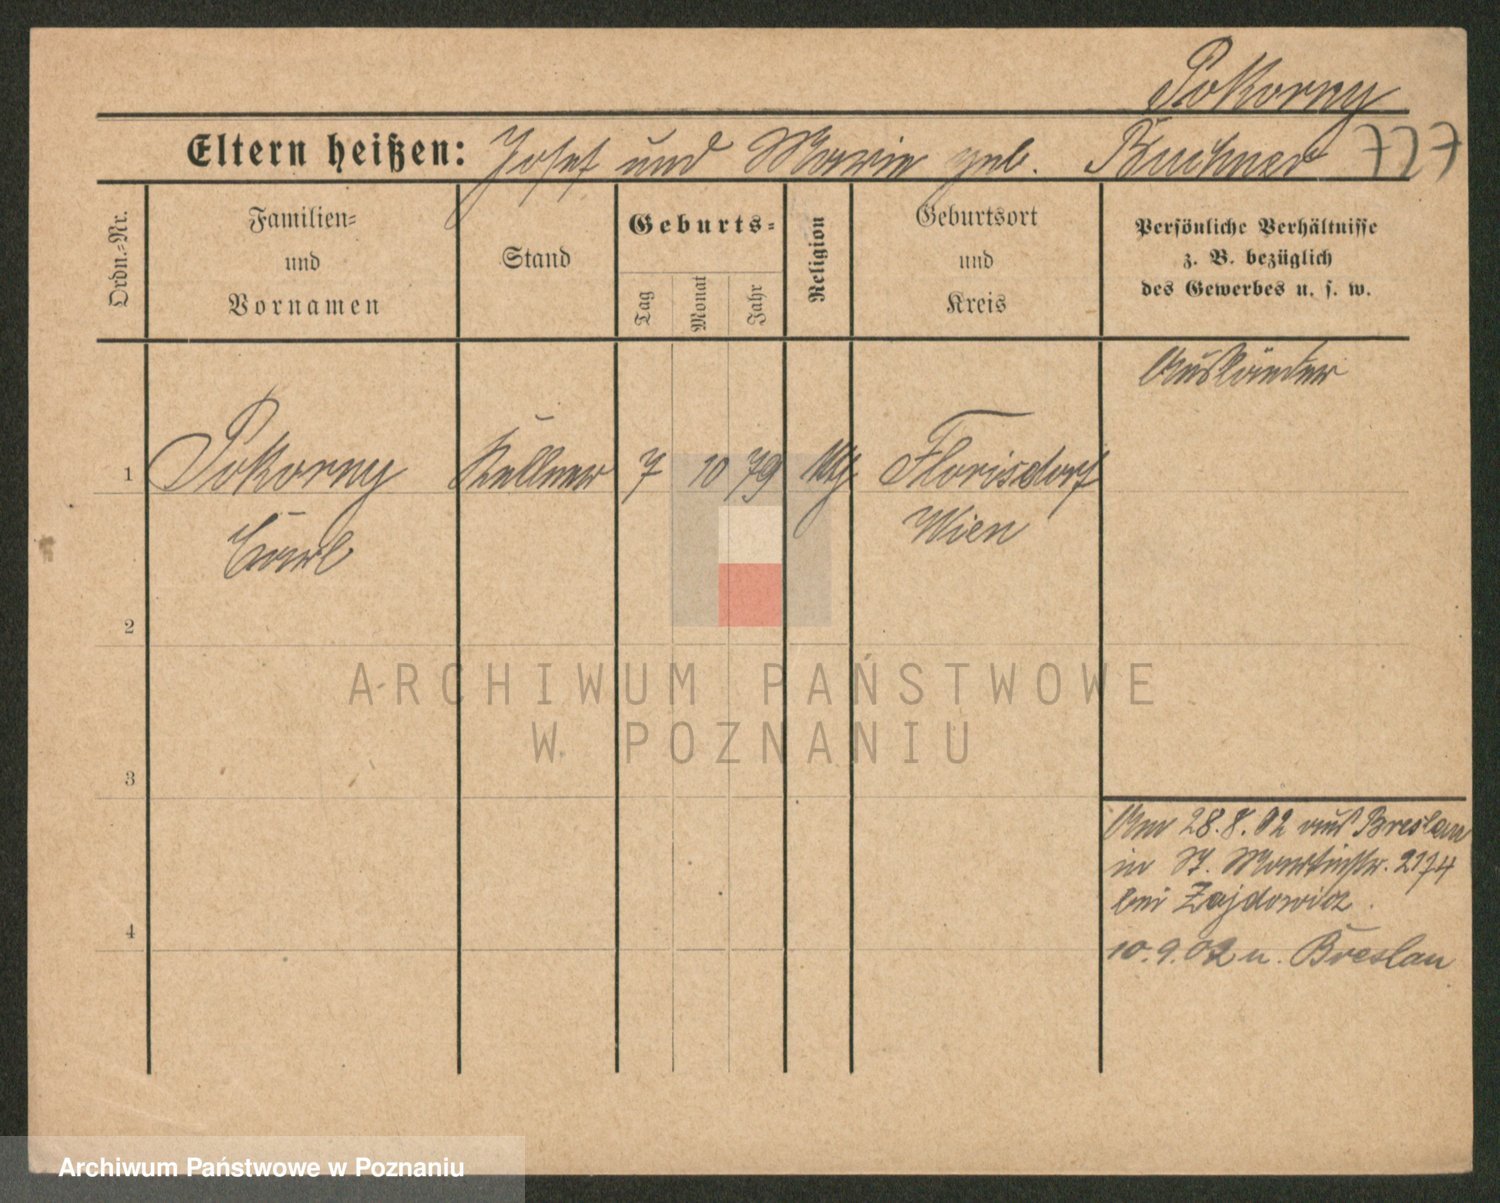 Pokorny
Eltern heißen: Josef und Marie geb. Buchner 727
Ordn.-Nr.
Familien-
und
Vornamen
Stand
Geburts-
Tag
Monat
Jahr
Religion
Geburtsort
und
Kreis
Persönliche Verhältnisse
z. B. bezüglich
des Gewerbes u. s. w.
Ausländer
1 Pokorny Kellner 7 10 79 Florisdorf
Carl Wien
2
3
4
Am 28.8.02 aus Breslau
in St. Martinstr.
bei Zajdowicz.
10.9.02 n. Breslau
ARCHIWUM PAŃSTWOWE
W POZNANIU
Archiwum Państwowe w Poznaniu